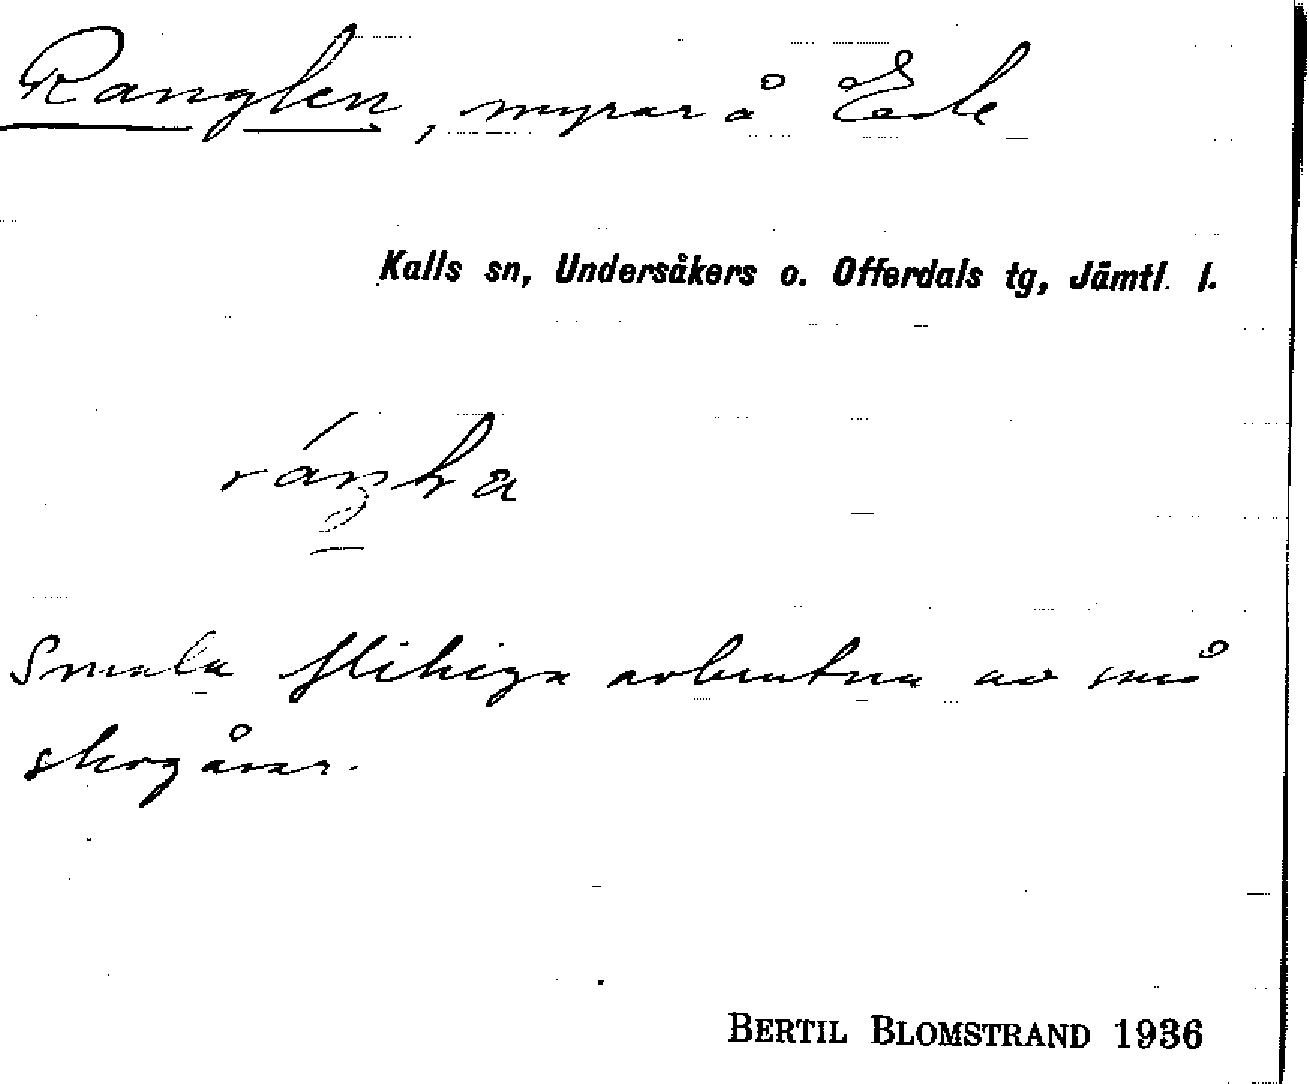 Ranglen, myrar å Ede
Kalls sn, Undersåkers o. Offerdals tg, Jämtl. l.
Smala flikiga avbrutna av små
skogåsar.
BERTIL BLOMSTRAND 1936